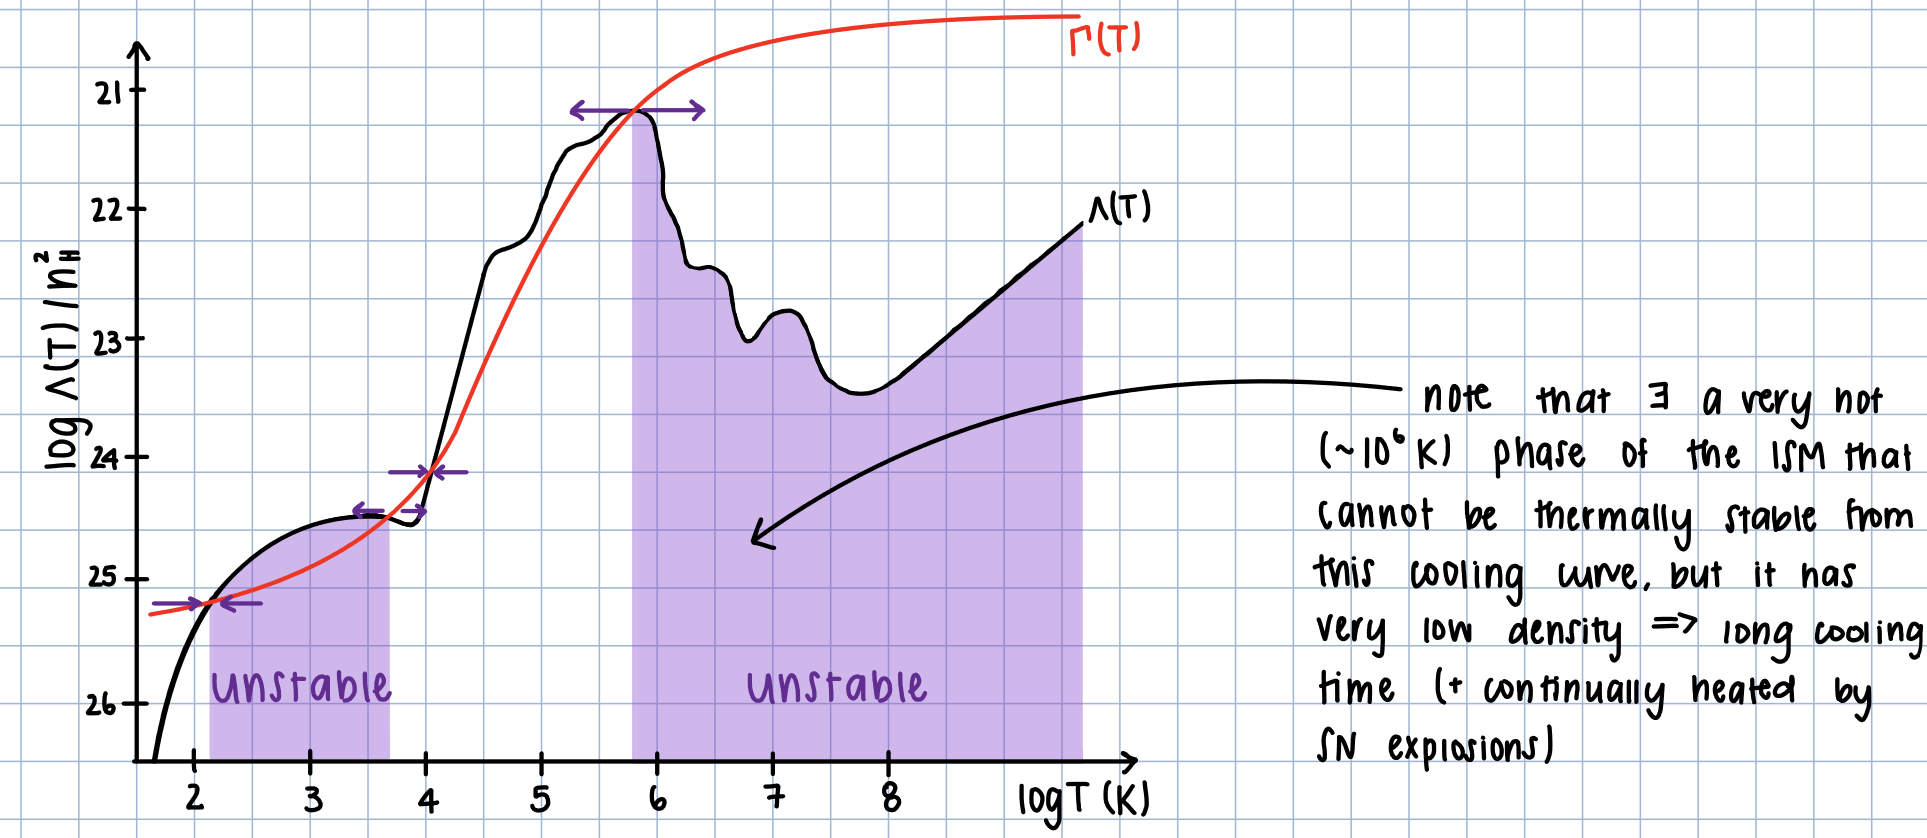 Γ(T)
21
22
23
24
25
26
log Λ(T) / n_H^2
Λ(T)
unstable
unstable
2
3
4
5
6
7
8
log T (K)
note that ∃ a very hot
(~10^6 K) phase of the ISM that
cannot be thermally stable from
this cooling curve, but it has
very low density => long cooling
time (+ continually heated by
SN explosions)